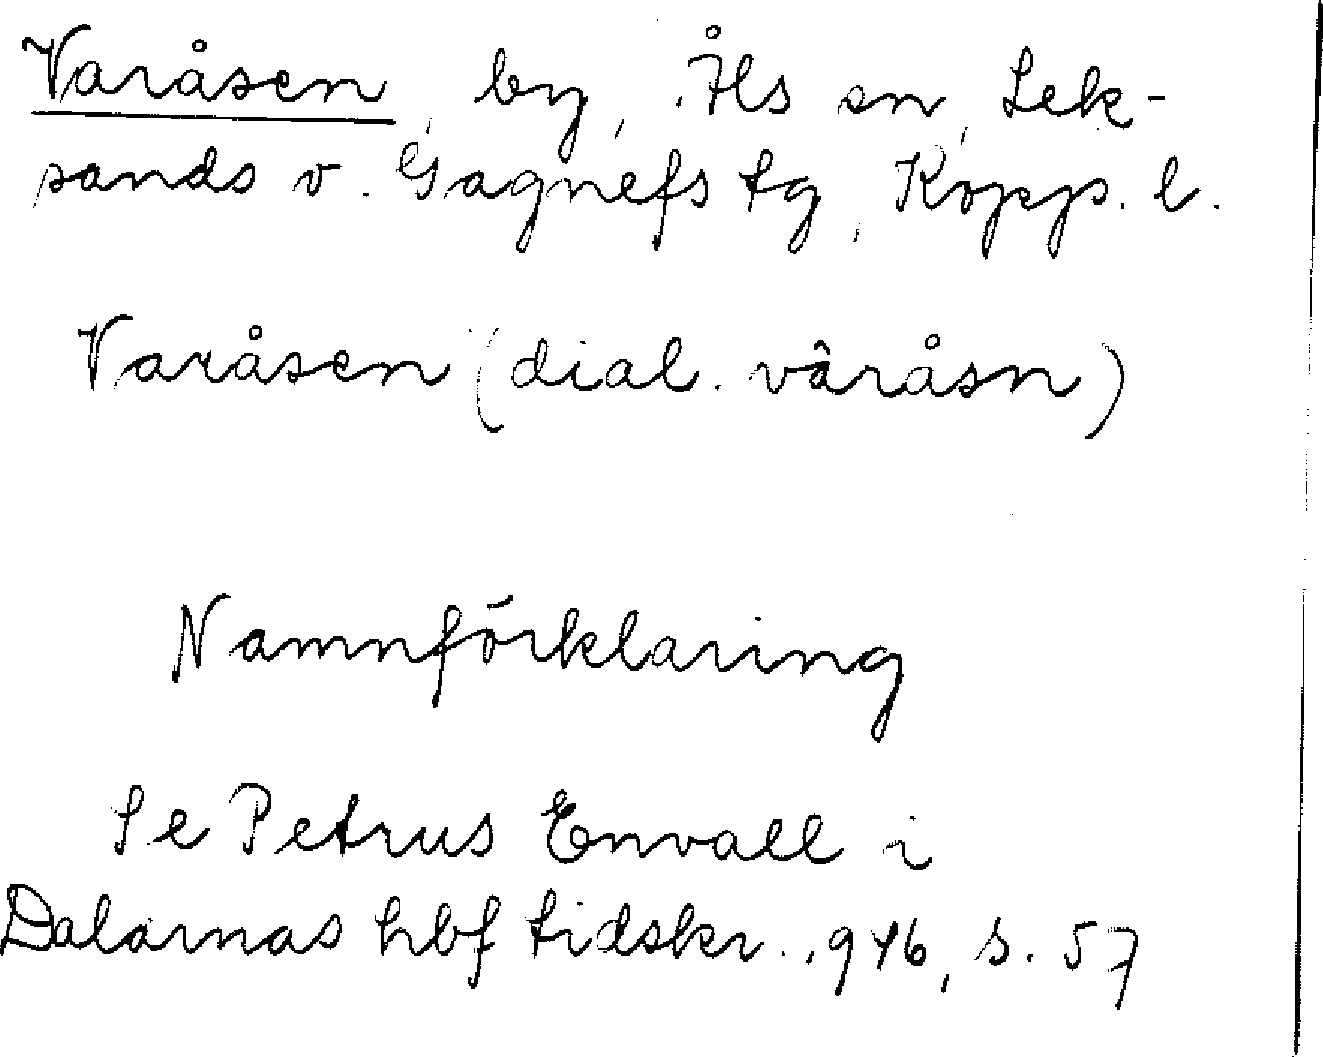 Varåsen, by, Åls sn, Lek-
sands o. Gagnefs tg, Kopp. l.
Varåsen (dial. vâråsn)
Namnförklaring
Se Petrus Envall i
Dalarnas hbf tidskr. 1946, s. 57